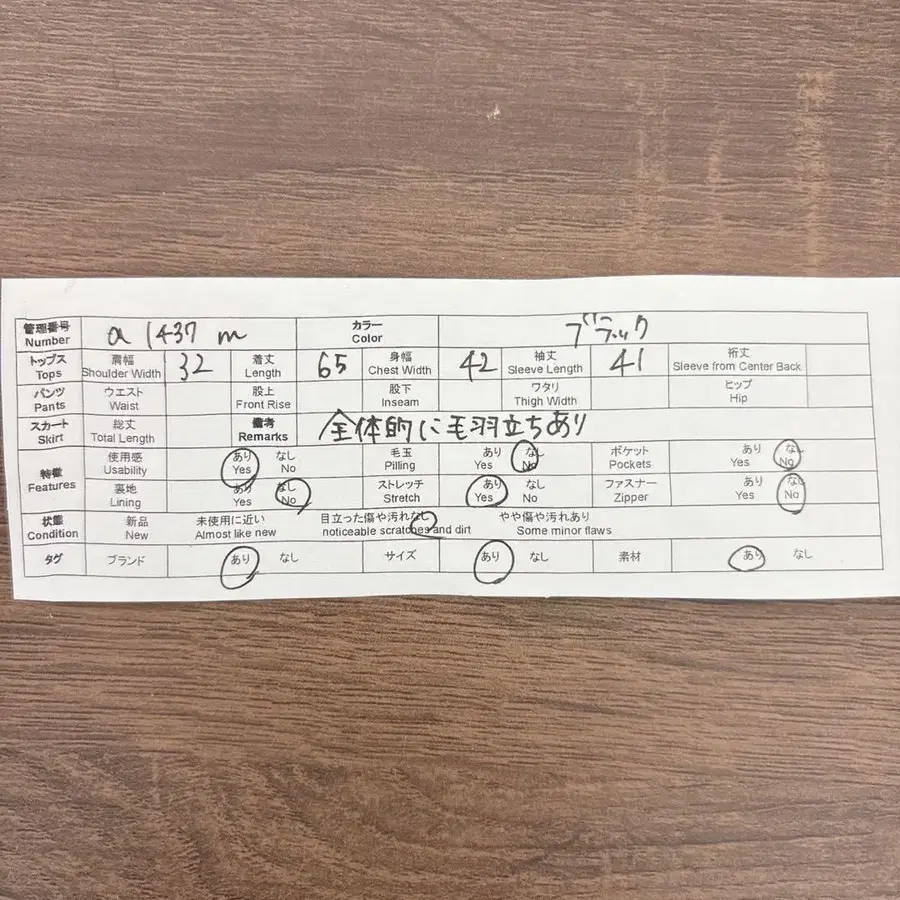 管理番号 a 1437 m カラー ブラック
Number Color
トップス 肩幅 32 着丈 65 身幅 42 袖丈 41 裄丈
Tops Shoulder Width Length Chest Width Sleeve Length Sleeve from Center Back
パンツ ウエスト 股上 股下 ワタリ ヒップ
Pants Waist Front Rise Inseam Thigh Width Hip
スカート 総丈 備考 全体的に毛羽立ちあり
Skirt Total Length Remarks
特徴 使用感 あり なし 毛玉 あり なし ポケット あり なし
Features Usability Yes No Pilling Yes No Pockets Yes No
裏地 あり なし ストレッチ あり なし ファスナー あり なし
Lining Yes No Stretch Yes No Zipper Yes No
状態 新品 未使用に近い 目立った傷や汚れなし やや傷や汚れあり
Condition New Almost like new noticeable scratches and dirt Some minor flaws
タグ ブランド あり なし サイズ あり なし 素材 あり なし